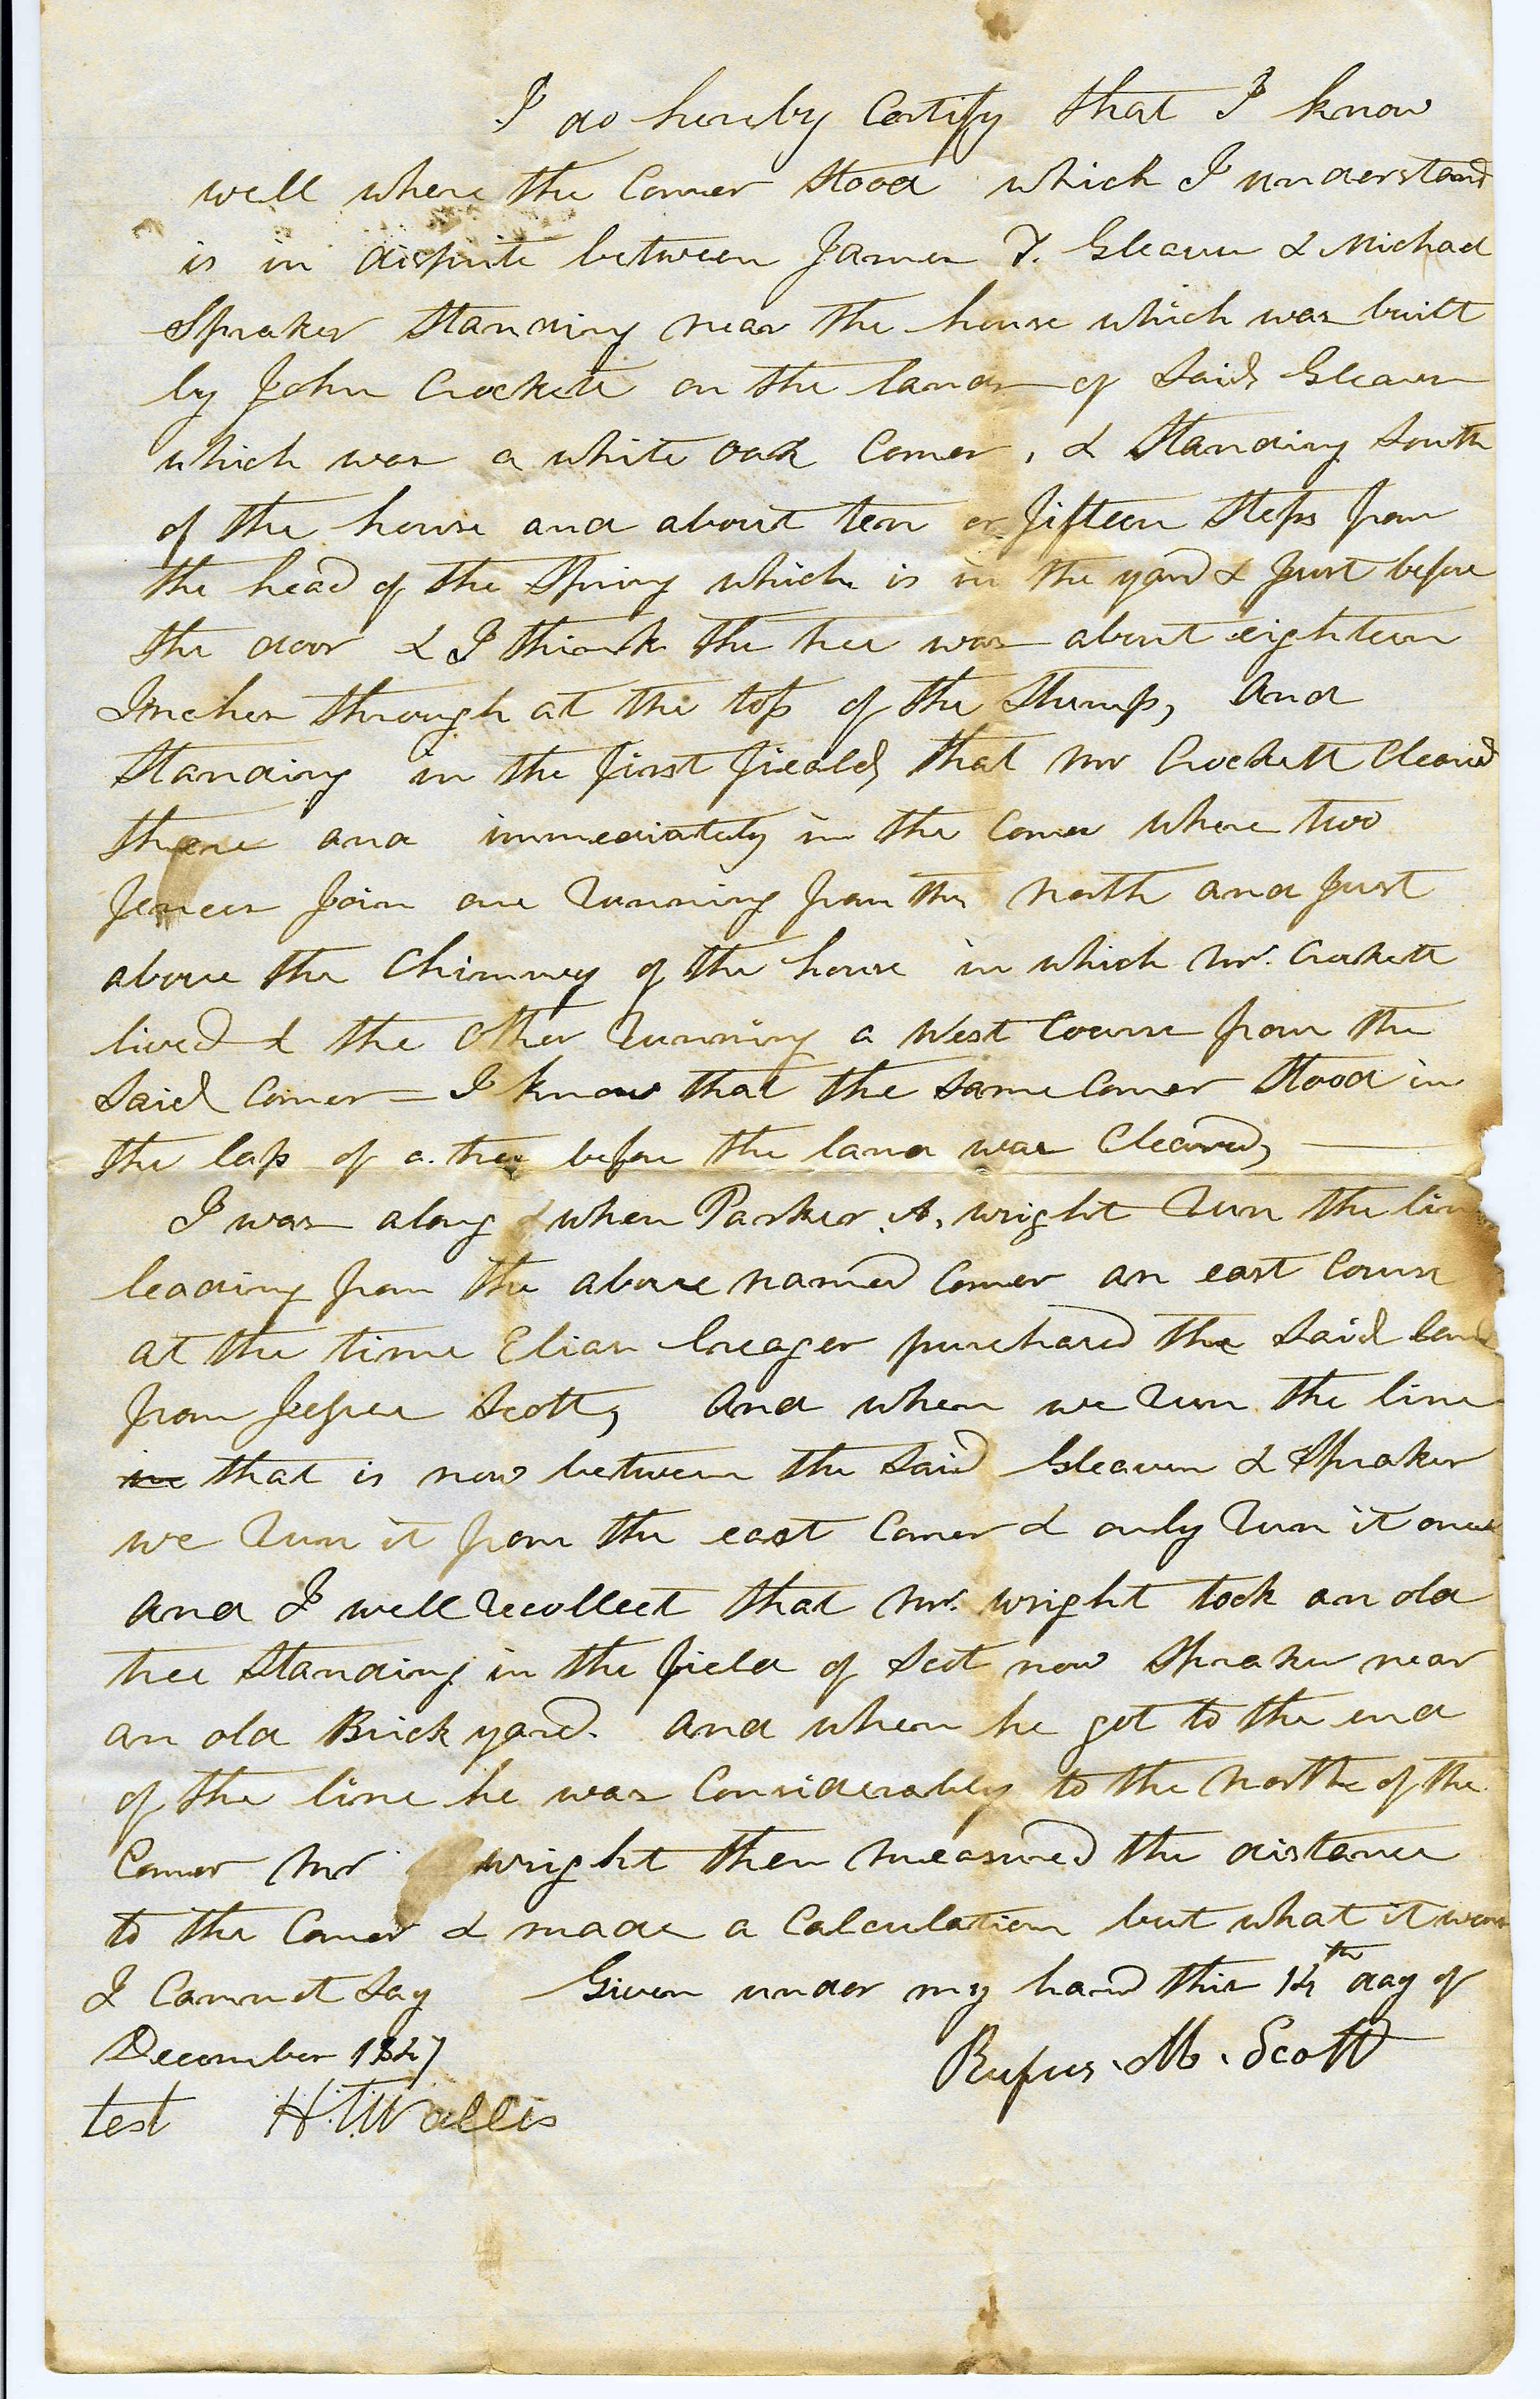 I do hereby Certify that I know
well where the Corner Stood which I understand
is in dispute between James T. Gleaves & Michael
Spraker Standing near the house which was built
by John Crockett on the lands of Said Gleaves
which was a white oak Corner, & Standing South
of the house and about ten or fifteen Steps from
the head of the Spring which is in the yard & Just before
the door & I think the tree was about eighteen
Inches through at the top of the Stump, and
Standing in the first fieald, that Mr Crockett Cleared
there and immediately in the Corner where two
fences Join one Running from the North and Just
above the Chimney of the house in which Mr. Crockett
lived & the Other Running a West Course from the
Said Corner = I know that the Same Corner Stood in
the lap of a tree before the land was Cleared,
I was along & when Parker. A. wright Run the line
leading from the above named Corner an east Course
at the time Elias Creager purchased the Said land
from Jesse Scott, And when we Run the line
that is now between the Said Gleaves & Spraker
we Run it from the east Corner & only Run it once
And I well Recollect that Mr. wright took an old
tree Standing in the field of Scot now Spraker near
an old Brick yard. And when he got to the end
of the line he was Considerably to the North of the
Corner Mr wright then Measured the distance
to the Corner & made a Calculation but what it was
I Cannot Say Given under my hand this 14th day of
December 1847
Rufus. M. Scott
test H.T. Wallis